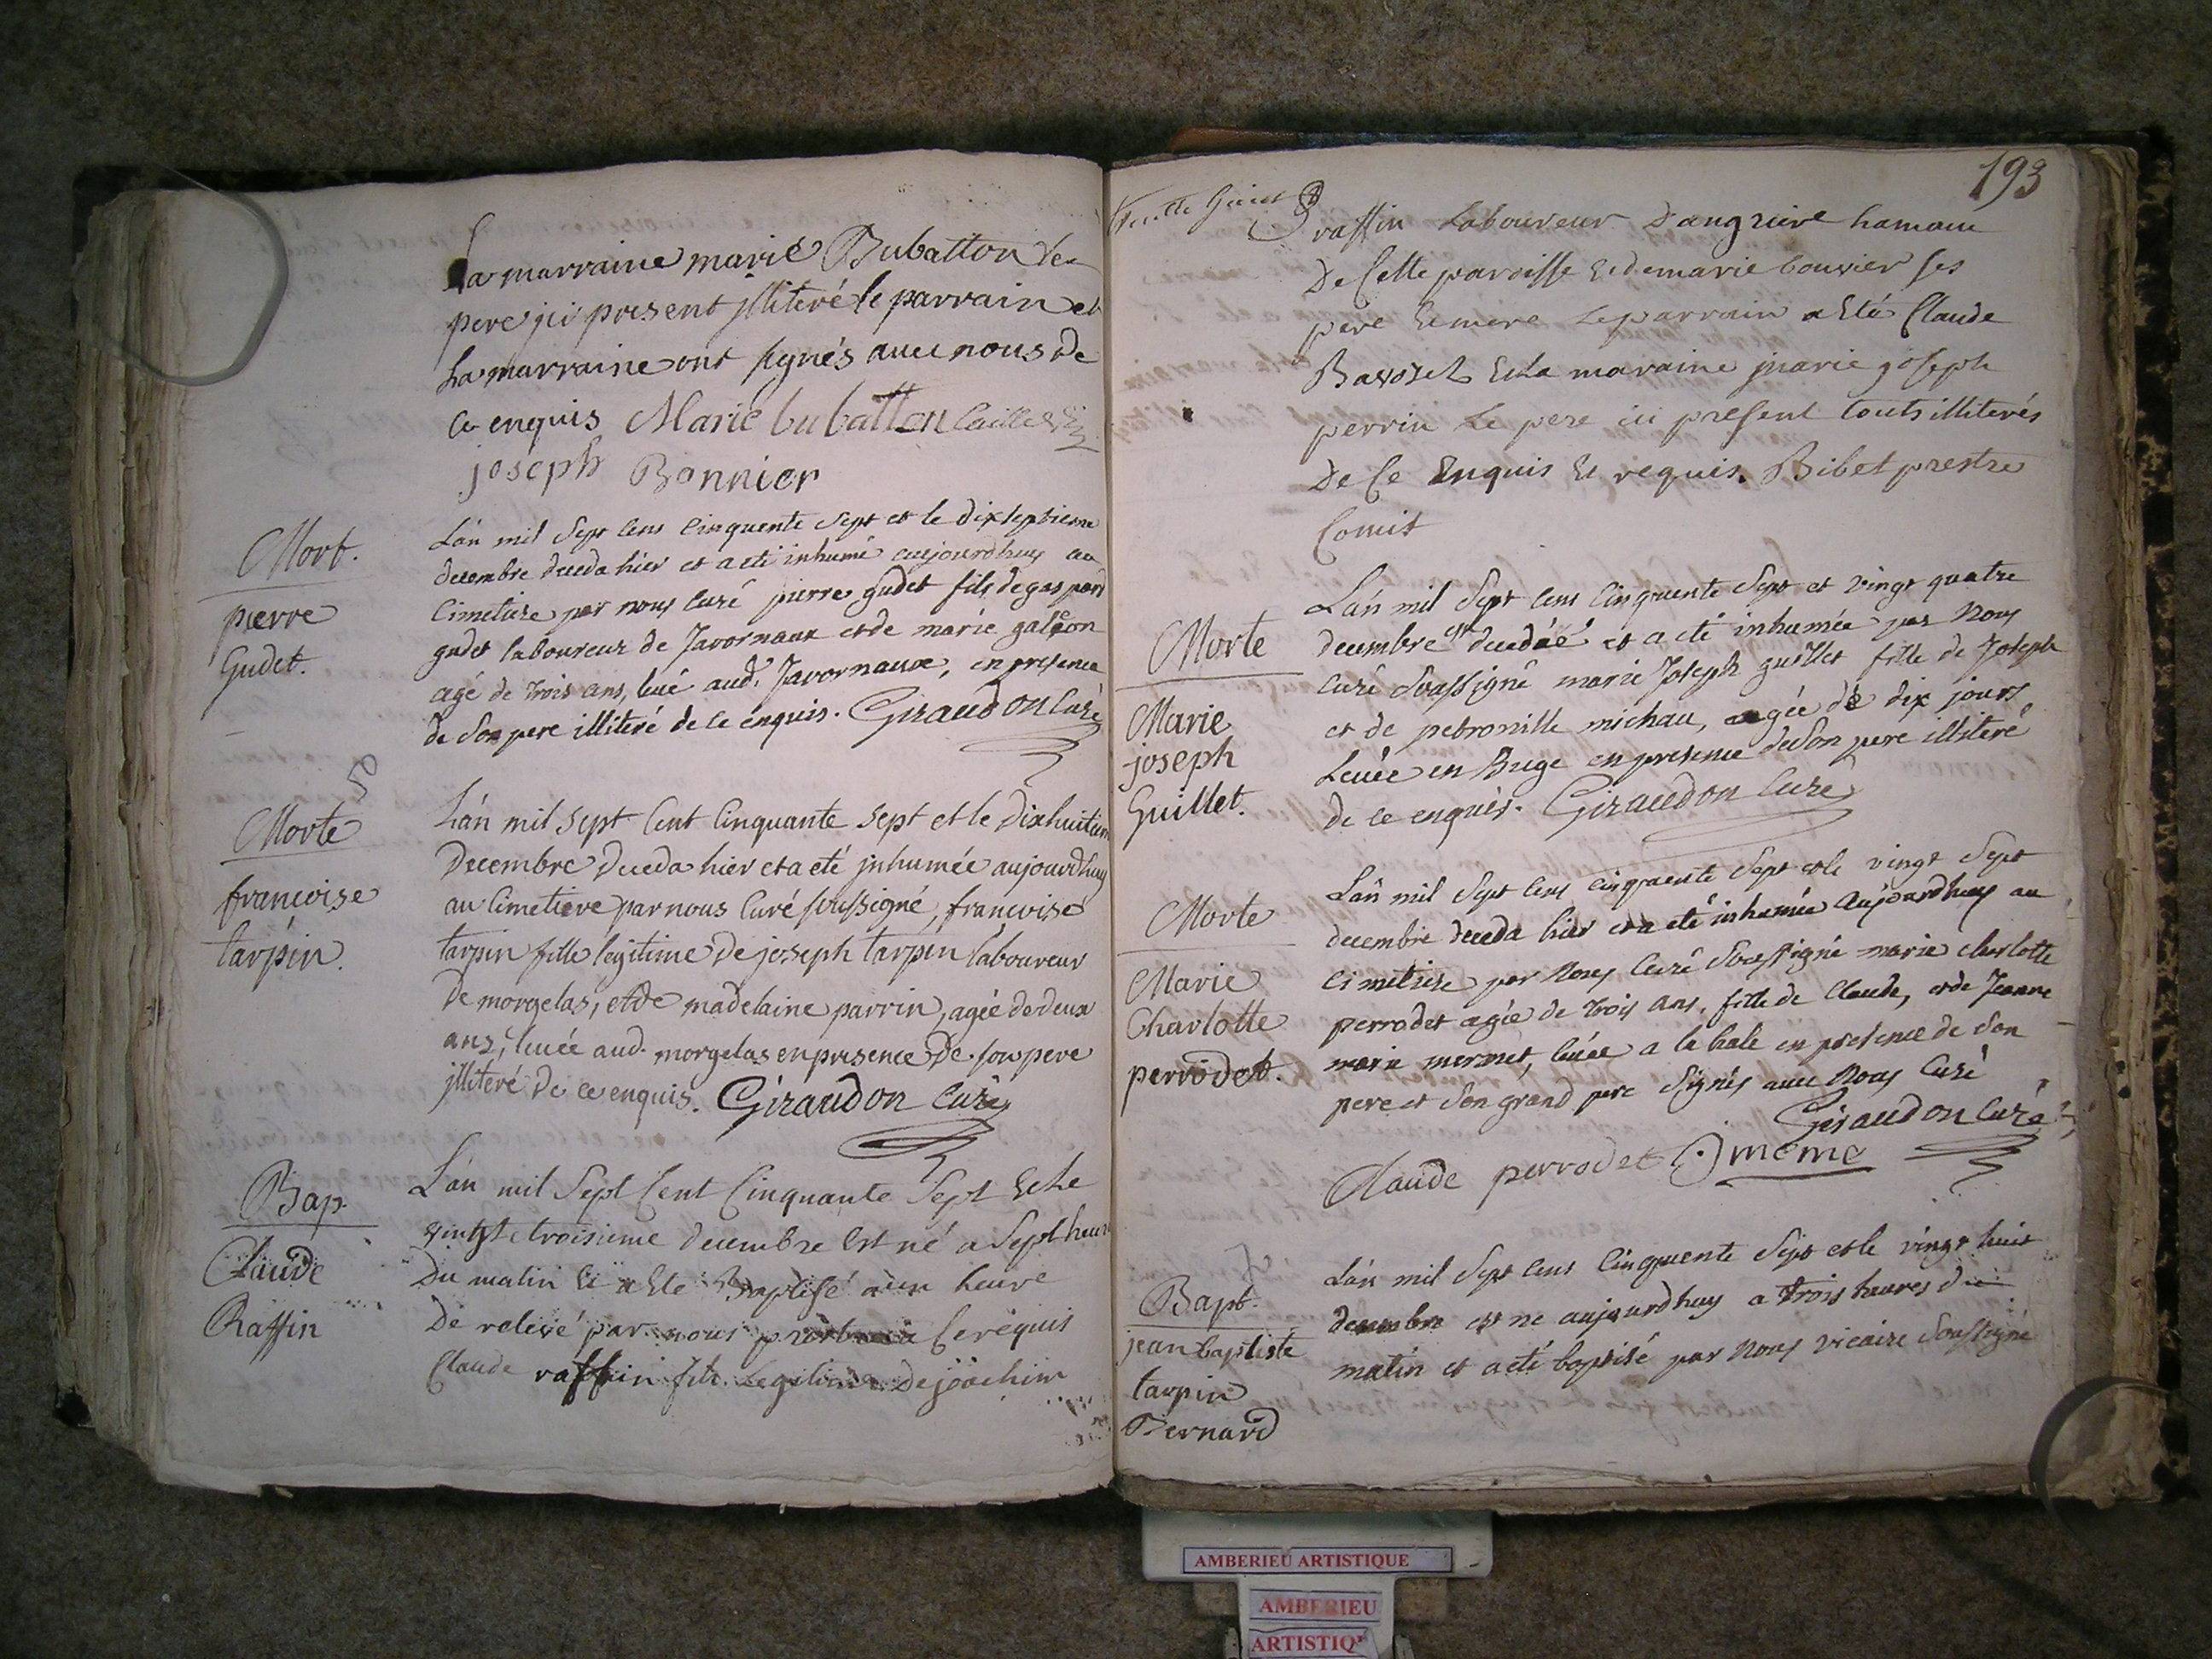 La marraine marie Bubatton le
pere ici present illiteré le parrain et
La marraine ont signés avec nous de
ce enquis Marie bubatton
joseph Bonnier
Mort.
pierre
Gudet.
L'an mil Sept Cens Cinquente Sept et le dixseptieme
decembre deceda hier et a eté inhumé aujourdhuy au
Cimetiere par nous Curé pierre gudet fils de gaspard
gudet laboureur de Javornaux et de marie galéon
agé de trois ans, levé aud. Javornaux, en presence
de Son pere illiteré de ce enquis. Giraudon Curé
50
Morte
francoise
tarpin.
L'an mil sept Cent Cinquante sept et le dixhuitiem
Decembre deceda hier et a eté inhumée aujourdhuy
au Cimetiere par nous Curé soussigné, francoise
tarpin fille legitime de joseph tarpin laboureur
de morgelas, et de madelaine parrin, agée de deux
ans, levée aud. morgelas en presence de son pere
illiteré de ce enquis. Giraudon Curé
Bap.
Claude
Raffin
L'an mil Sept Cent Cinquante Sept Et le
vingt troisieme decembre Est né a Sept heure
du matin Et a Ete Baptisé a un heure
De relevé par nous ce requis
Claude raffin fils Legitime de joachim
193
raffin Laboureur D'angriere hamau
De Cette paroisse Et de marie bouvier ses
pere Et mere Le parrain a Eté Claude
Bavozet Et la maraine marie joseph
perrin Le pere ici present touts illiterés
De Ce Enquis Et requis. Bibet prestre
Comis
Morte
Marie
joseph
Guillet.
L'an mil Sept Cens Cinquente Sept et vingt quatre
decembre est decedée et a eté inhumée par Nous
Curé Soussigné marie Joseph guillet fille de Joseph
et de petronille michau, agée de dix jours
Levée en Buge en presence de Son pere illiteré
de ce enquis. Giraudon Curé
Morte
Marie
Charlotte
perrodet.
L'an mil Sept Cens Cinquente Sept et le vingt Sept
decembre deceda hier et a eté inhumée aujourdhuy au
Cimetiere par Nous Curé Soussigné marie charlotte
perrodet agée de trois ans, fille de Claude, et de Jeanne
marie mermet, levée a la hale en presence de Son
pere et Son grand pere Signés avec Nous Curé
Giraudon Curé
Claude perrodet
Bapt.
jean baptiste
tarpin
Bernard
L'an mil Sept Cens Cinquente Sept et le vingt huit
decembre est ne aujourdhuy a trois heures du
matin et a eté baptisé par Nous vicaire Soussigné
AMBERIEU ARTISTIQUE
AMBERIEU
ARTISTIQ